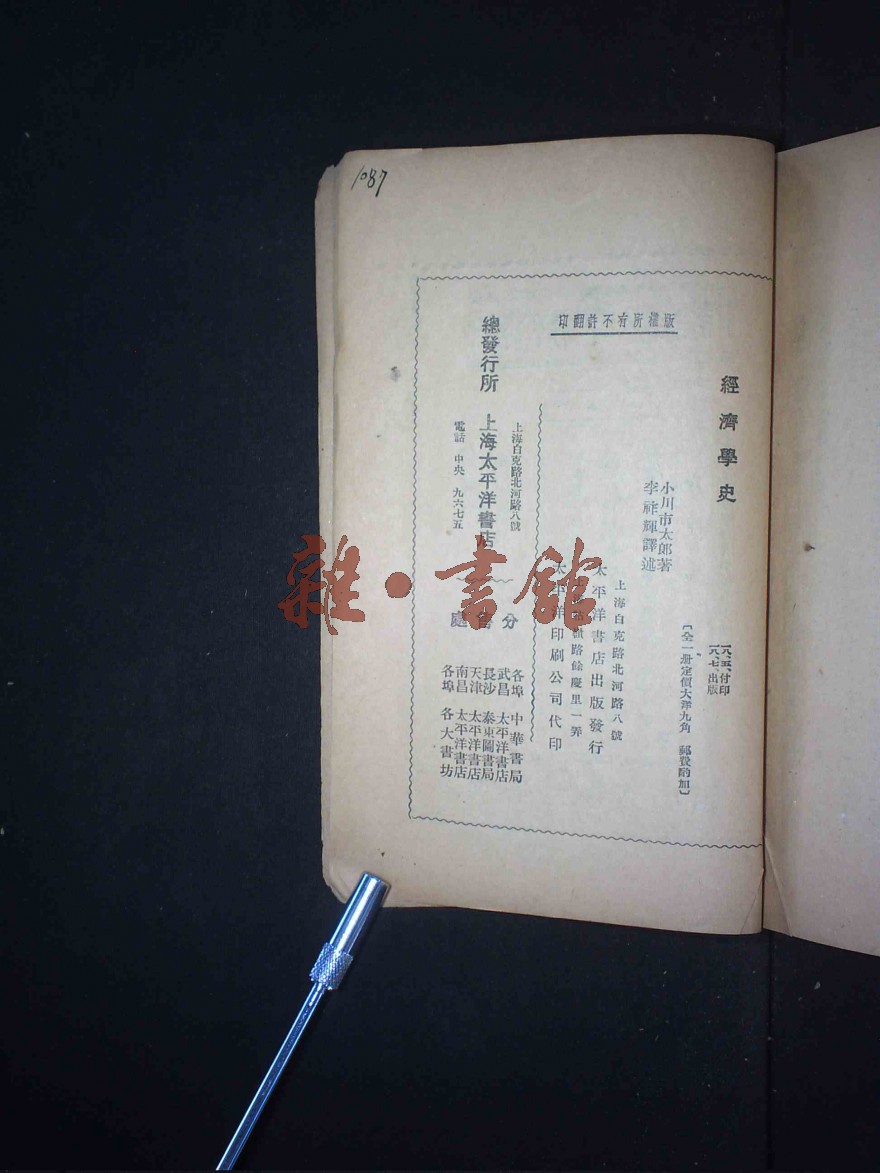 1087
版權所有不許翻印
經濟學史
一八、五、付印
一八、七、出版
〔全一册定價大洋九角 郵費酌加〕
小川市太郎著
李祥輝譯述
上海白克路北河路八號
太平洋書店出版發行
路餘慶里一弄
太平洋印刷公司代印
總發行所
上海白克路北河路八號
上海太平洋書店
電話 中央 九六七五
分售處
各埠 中華書局
武昌 太平洋書店
長沙 泰東圖書局
天津 太平洋書店
南昌 太平洋書店
各埠 各大書坊
雜·書館